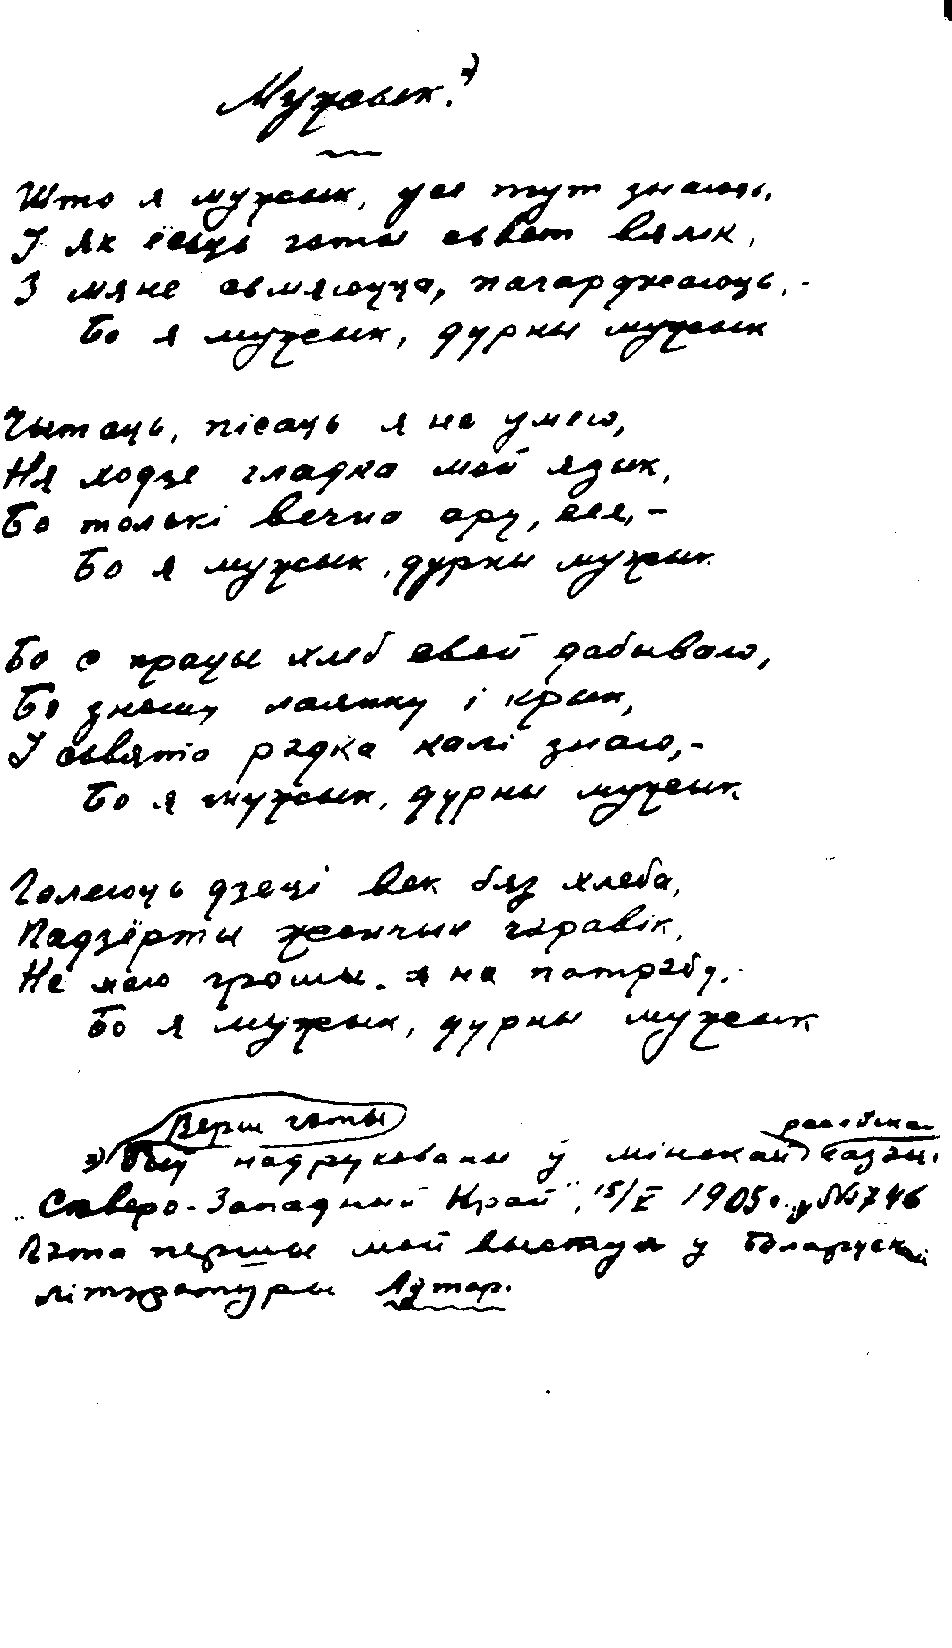 Мужык.*)
Што я мужык, усе тут знаюць,
І як ёсць гэты сьвет вялік,
З мяне сьмяюцца, пагарджаюць, -
Бо я мужык, дурны мужык
Чытаць, пісаць я не умею,
Ня ходзе гладка мой язык,
Бо толькі вечно ару, сею, -
Бо я мужык, дурны мужык.
Бо с працы хлеб свой дабываю,
Бо зношу лаянку і крык,
І сьвято рэдка калі знаю, -
Бо я мужык, дурны мужык
Галеюць дзеці век бяз хлеба,
Падзёрты жончын чаравік,
Не маю грошы я на патрэбу.
Бо я мужык, дурны мужык
Верш гэты
*) быў надрукованы ў мінскай расейскай газэц.
„Северо-Западный Край", 15/V 1905 г. у №746
Гэта першы мой выступ у беларускай
літэратуры Аўтар.